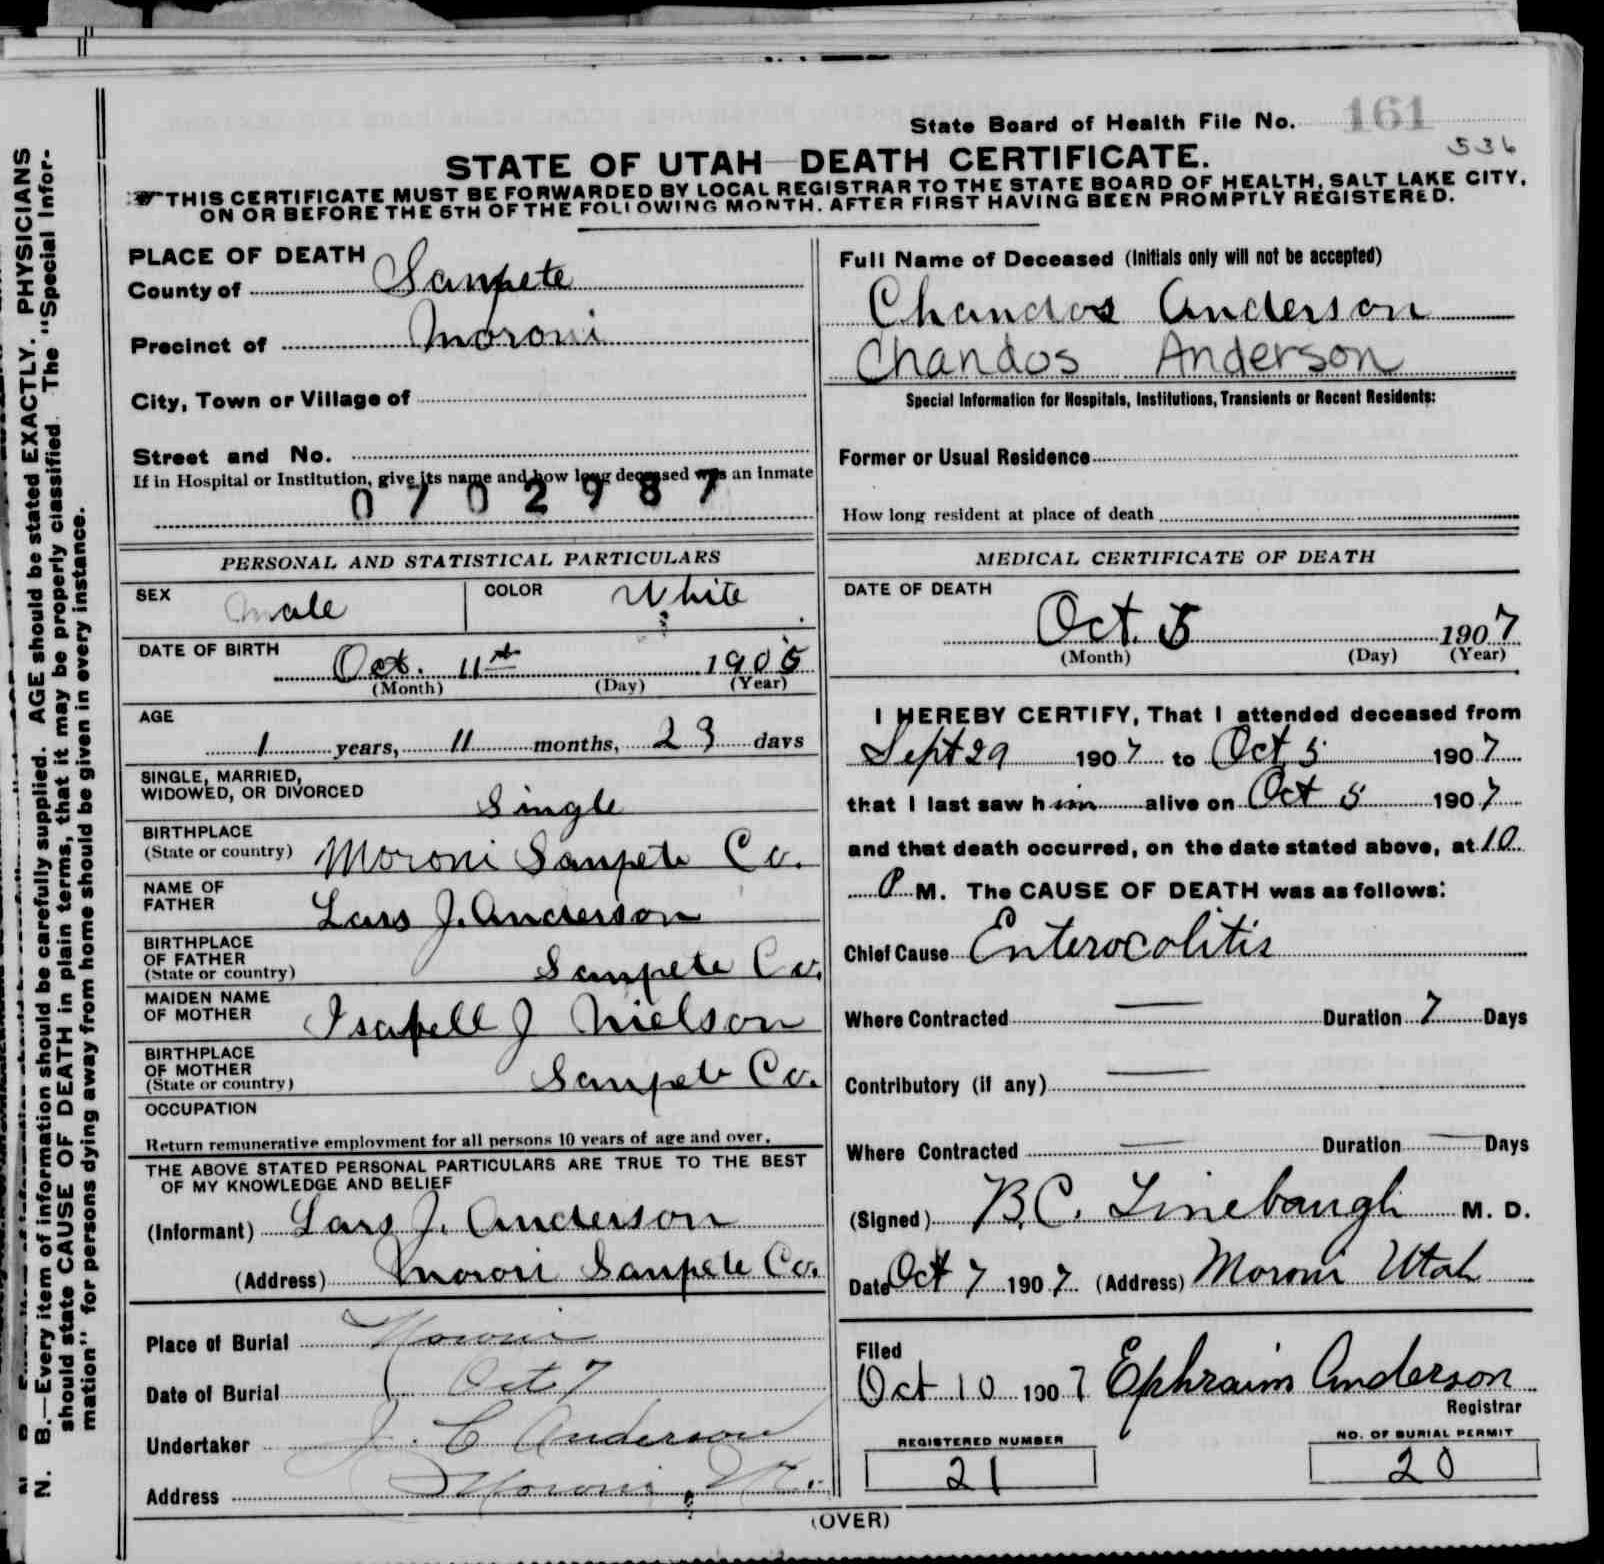 State Board of Health File No. 161
536
STATE OF UTAH—DEATH CERTIFICATE.
THIS CERTIFICATE MUST BE FORWARDED BY LOCAL REGISTRAR TO THE STATE BOARD OF HEALTH, SALT LAKE CITY,
ON OR BEFORE THE 5TH OF THE FOLLOWING MONTH. AFTER FIRST HAVING BEEN PROMPTLY REGISTERED.
PLACE OF DEATH
County of Sanpete
Precinct of Moroni
City, Town or Village of
Street and No.
If in Hospital or Institution, give its name and how long deceased was an inmate
0702987
PERSONAL AND STATISTICAL PARTICULARS
SEX male COLOR White
DATE OF BIRTH Oct. 11th 1905
(Month) (Day) (Year)
AGE
1 years, 11 months, 23 days
SINGLE, MARRIED,
WIDOWED, OR DIVORCED Single
BIRTHPLACE
(State or country) Moroni Sanpete Co.
NAME OF
FATHER Lars J. Anderson
BIRTHPLACE
OF FATHER
(State or country) Sanpete Co.
MAIDEN NAME
OF MOTHER Isabell J Nielson
BIRTHPLACE
OF MOTHER
(State or country) Sanpete Co.
OCCUPATION
Return remunerative employment for all persons 10 years of age and over.
THE ABOVE STATED PERSONAL PARTICULARS ARE TRUE TO THE BEST
OF MY KNOWLEDGE AND BELIEF
(Informant) Lars J. Anderson
(Address) Moroni Sanpete Co.
Place of Burial Moroni
Date of Burial Oct 7
Undertaker J. C Anderson
Address Moroni
Full Name of Deceased (Initials only will not be accepted)
Chandos Anderson
Chandos Anderson
Special Information for Hospitals, Institutions, Transients or Recent Residents:
Former or Usual Residence
How long resident at place of death
MEDICAL CERTIFICATE OF DEATH
DATE OF DEATH
Oct. 5 1907
(Month) (Day) (Year)
I HEREBY CERTIFY, That I attended deceased from
Sept 29 1907 to Oct 5 1907
that I last saw him alive on Oct 5 1907
and that death occurred, on the date stated above, at 10
P M. The CAUSE OF DEATH was as follows:
Chief Cause Enterocolitis
Where Contracted — Duration 7 Days
Contributory (if any) —
Where Contracted — Duration — Days
(Signed) B.C. Linebaugh M. D.
Date Oct 7 1907 (Address) Moroni Utah
Filed
Oct 10 1907 Ephraim Anderson
Registrar
REGISTERED NUMBER
21
NO. OF BURIAL PERMIT
20
(OVER)
N. B.—Every item of information should be carefully supplied. AGE should be stated EXACTLY. PHYSICIANS
should state CAUSE OF DEATH in plain terms, that it may be properly classified. The "Special Infor-
mation" for persons dying away from home should be given in every instance.